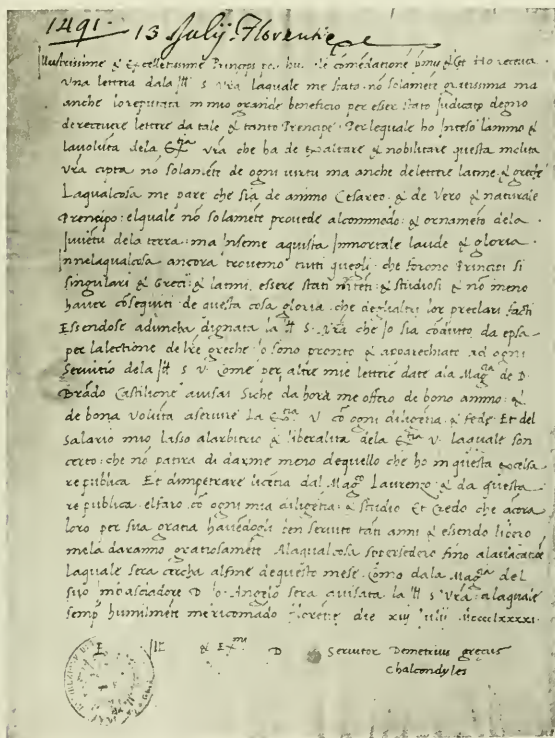 1491. 13 Julij. Florentie
Illustrissime & Excellentissime Princeps &c. hu. le comedatione Ho receuta
una lettera dala Ill. S. Vra laquale me stato nō solamēte gratissima ma
anche lo reputata in mio grande beneficio per esser stato Judicato degno
de receuere lettere da tale & tanto Principe. Per lequale ho Inteso lanimo &
lauoluta dela Ex.tia vra che ha de exaltare & nobilitare questa inclita
vra cipta nō solamēte de ogni virtu ma anche de lettere latine & greche
Laqualcosa me pare che sia de animo Cesareo: & de Vero & naturale
Prencipo: elquale nō solamēte prouede alcommodo: & ornamēto dela
Juuētu dela terra: ma Inseme aquista Immortale laude & gloria.
Innelaqualcosa ancora trouemo tutti quegli che forono Principi si
singulari & Greci & latini, essere stati intēti & studiosi & nō meno
hauer cōsequiti de questa cosa gloria, che deglialtri lor preclari facti
Essendose aduncha dignata la Ill. S. Vra che Jo sia cōduto da epsa
per lalectione delre greche Jo sono pronto & apparechiato ad ogni
Seruitio dela Ill S V. Come per altre mie lettere date ala Mag.tia de D.
Brādo Castilione auisai Siche da hora me offero de bono animo: &
de bona voluta aseruire La Ex.tia V cō ogni diligētia & fede. Et del
Salario mio lasso alarbitrio & liberalita dela Ex.tia V. laquale son
certo: che nō patira di darme meno dequello che ho in questa excelsa
republica Et dimpetrare licētia dal Mag.co Laurenzo, & da questa
republica elfaro cō ogni mia diligētia & studio Et Credo che acora
loro per sua gratia hauēdogli ben seruito tāti anni & esendo libero
mela daranno gratiosamēte Alaqualcosa sopersedero fino alauacatiōe
Laquale sera circha alfine dequesto mese. Como dala Mag.tia del
suo imbasciadore D. Jo. Angelo sera auisata la Ill S Vra: alaquale
semp humilmēte me ricomādo Florētie die xiij Julij Mcccclxxxxi.
E. Ill & Ex.me D Seruitor Demetrius grecus
Chalcondyles